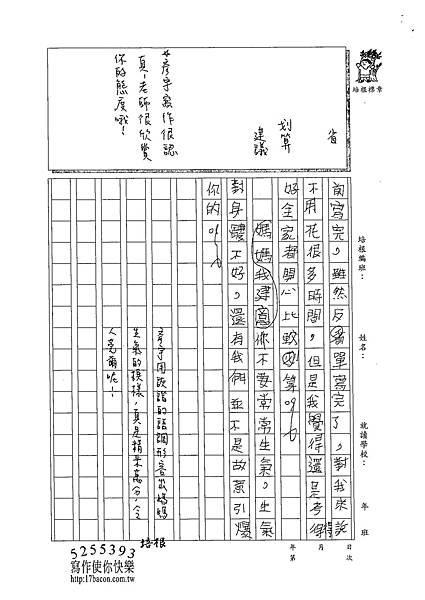 培根標章
省
划算
建議
彥宇寫作很認
真!老師很欣賞
你的態度哦!
培根編班:
姓名:
就讀學校:
年 班
前寫完,雖然反省單寫完了,對我來說
不用花很多時間,但是我覺得還是考得
好全家都開心比較划算
媽媽我建議你不要常常生氣,生氣
對身體不好,還有我們並不是故意引爆
你的
彥宇用詼諧的語調形容媽媽
生氣的模樣,真是精采萬分,令
人莞爾呢!
培根
年 月 日
第 次
5255393
寫作使你快樂
http://17bacon.com.tw